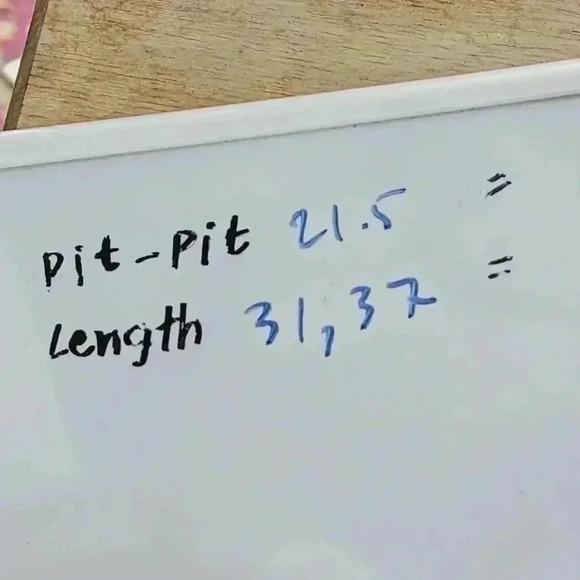 Pit-Pit 21.5 "
Length 31,37 "